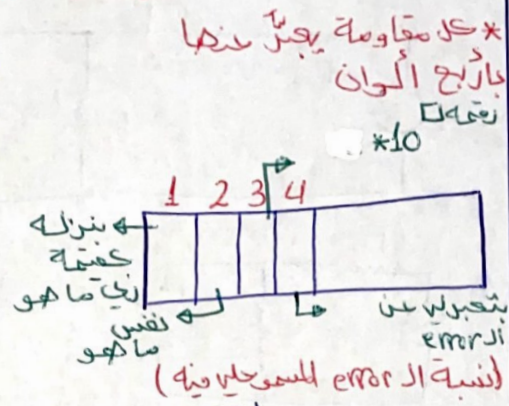 * كل مقاومة يعبرّ عنها
بأربع ألوان
رقمه□
*10
1 2 3 4
بنزله
كقيمة
زي ما هو
نفس
ما هو
بتعبرلي عن
الـ error
(نسبة الـ error المسموحلي فيه)